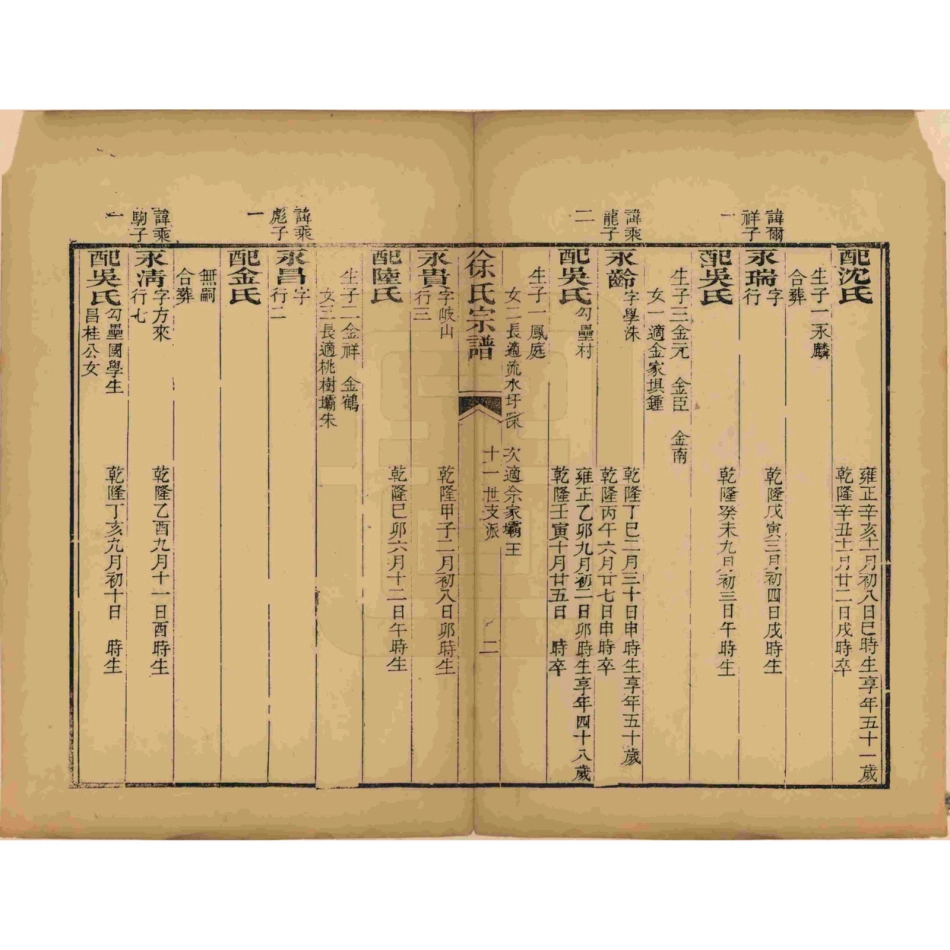 配沈氏
雍正辛亥十一月初八日巳時生享年五十一歲
乾隆辛丑十一月廿二日戌時卒
生子一永麟
合葬
諱爾
祥子
一
永瑞字
行一
乾隆戊寅三月初四日戌時生
配吳氏
乾隆癸未九月初三日午時生
生子三金元 金臣 金南
女一適金家垻鍾
諱乘
龍子
二
永齡字學洙
乾隆丁巳二月三十日申時生享年五十歲
乾隆丙午六月廿七日申時卒
配吳氏勾壘村
雍正乙卯九月初二日卯時生享年四十八歲
乾隆壬寅十月廿五日 時卒
生子一鳳庭
女二長適流水圩 次適佘家壩王
徐氏宗譜
十一世支派
二
永貴字岐山
行三
乾隆甲子二月初八日卯時生
配陸氏
乾隆巳卯六月十二日午時生
生子二金祥 金鶴
女三長適桃樹壩朱
諱乘
彪子
一
永昌字
行二
配金氏
無嗣
合葬
諱乘
駒子
一
永清字方來
行七
乾隆乙酉九月十一日酉時生
配吳氏勾壘國學生
昌桂公女
乾隆丁亥九月初十日 時生